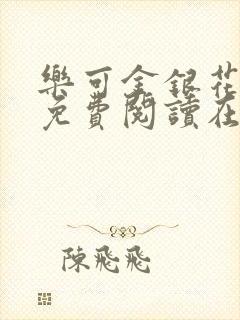 樂可金銀花
免費閱讀在
陳飛飛